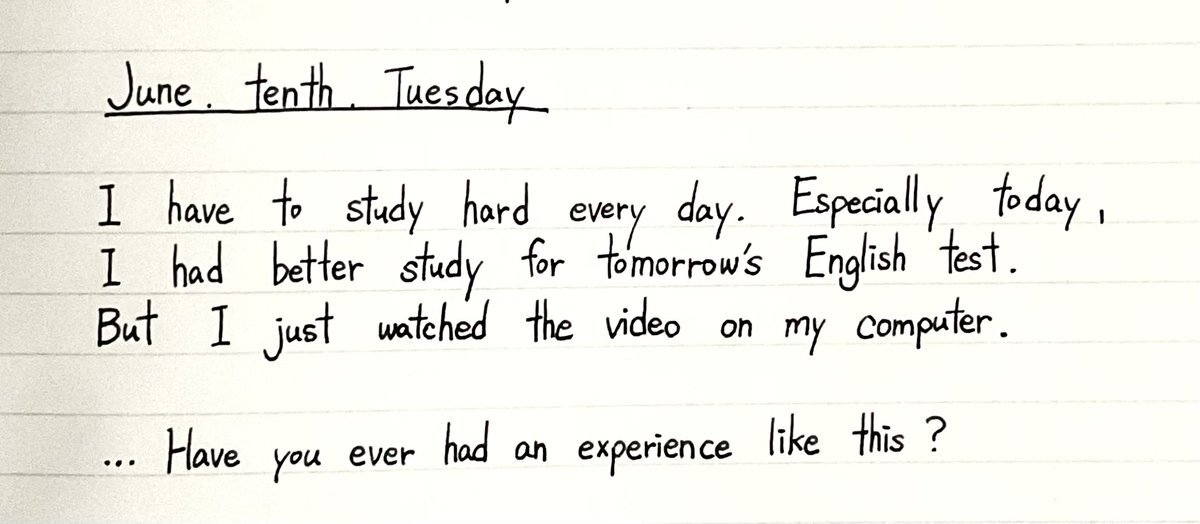 June. tenth. Tuesday
I have to study hard every day. Especially today,
I had better study for tomorrow's English test.
But I just watched the video on my computer.
... Have you ever had an experience like this?